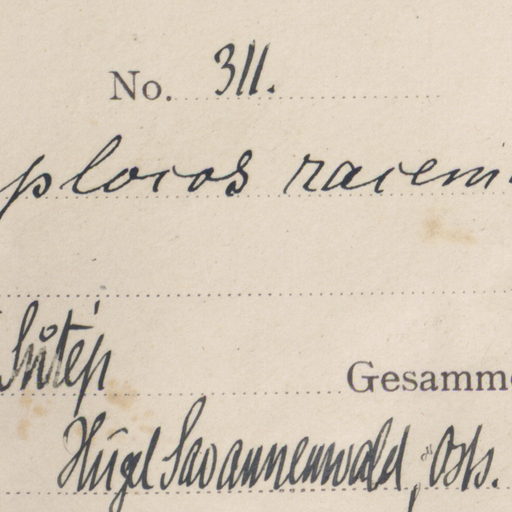 No. 311.
plocos racem
Sutép
Gesamm
Hügel Savannenwald,